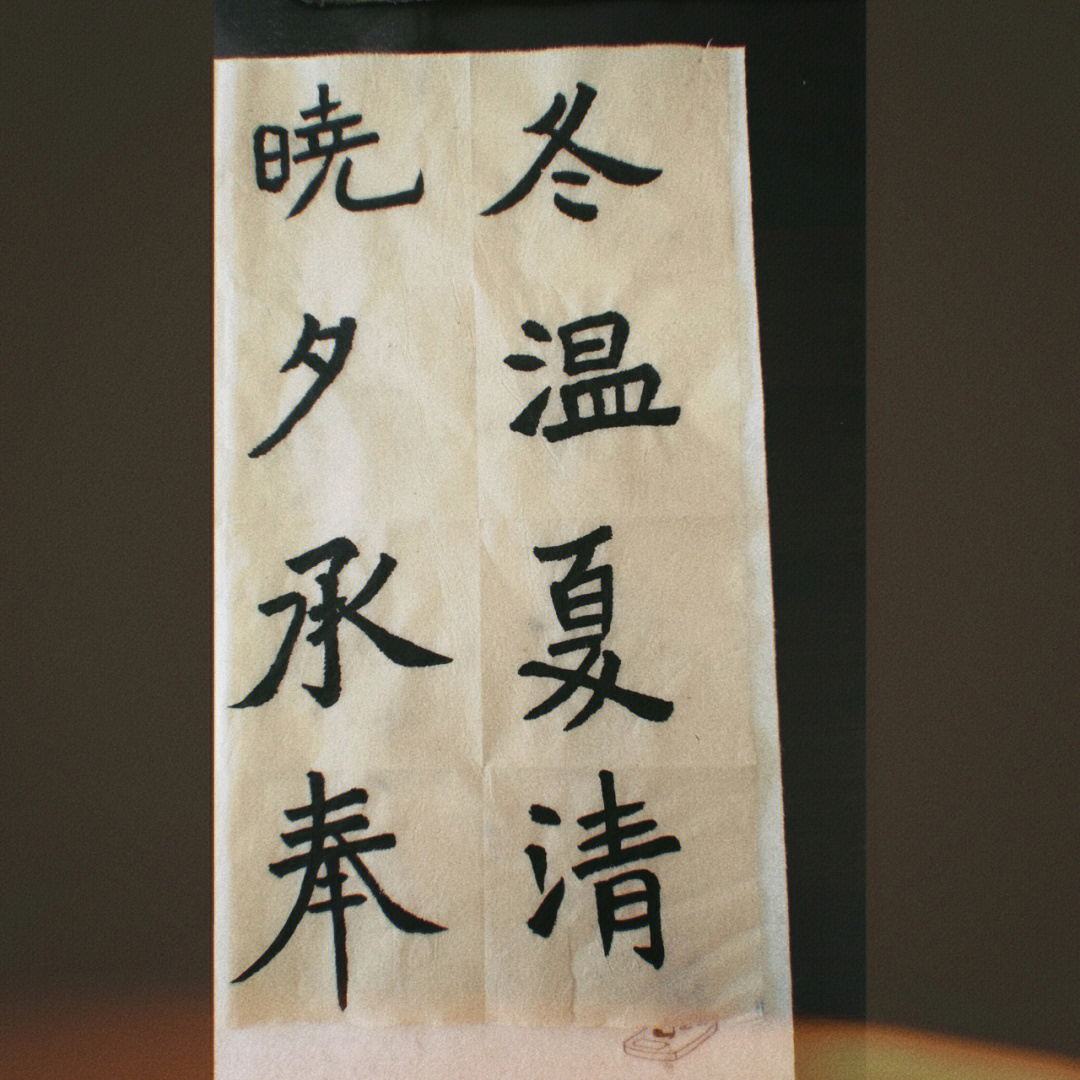 冬温夏清
暁夕承奉